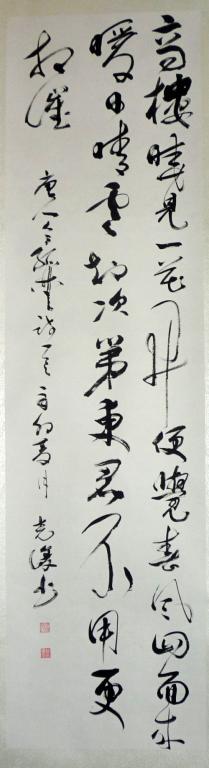 高樓曉見一花開便覺春风四面來
暖日晴雲知次第東君不用更
相催
唐人令狐楚詩一首辛卯月志書